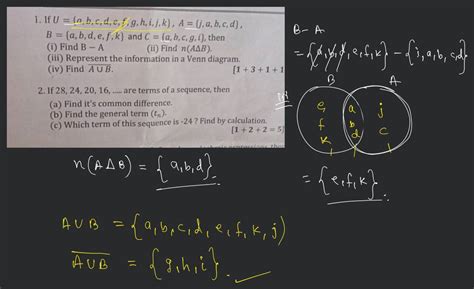 1. If U = {a, b, c, d, e, f, g, h, i, j, k}, A = {j, a, b, c, d},
B = {a, b, d, e, f, k} and C = {a, b, c, g, i}, then
(i) Find B − A (ii) Find n(AΔB).
(iii) Represent the information in a Venn diagram.
(iv) Find A̅ ∪̅ B̅. [1 + 3 + 1 + 1
2. If 28, 24, 20, 16, .... are terms of a sequence, then
(a) Find it's common difference.
(b) Find the general term (tₙ).
(c) Which term of this sequence is -24 ? Find by calculation.
[1 + 2 + 2 = 5]
B − A
= {a, b, d, e, f, k} − {j, a, b, c, d}
B A
e a j
f b c
k d
= {e, f, k}
n(A Δ B) = {a, b, d}
A ∪ B = {a, b, c, d, e, f, k, j}
A̅ ∪̅ B̅ = {g, h, i}